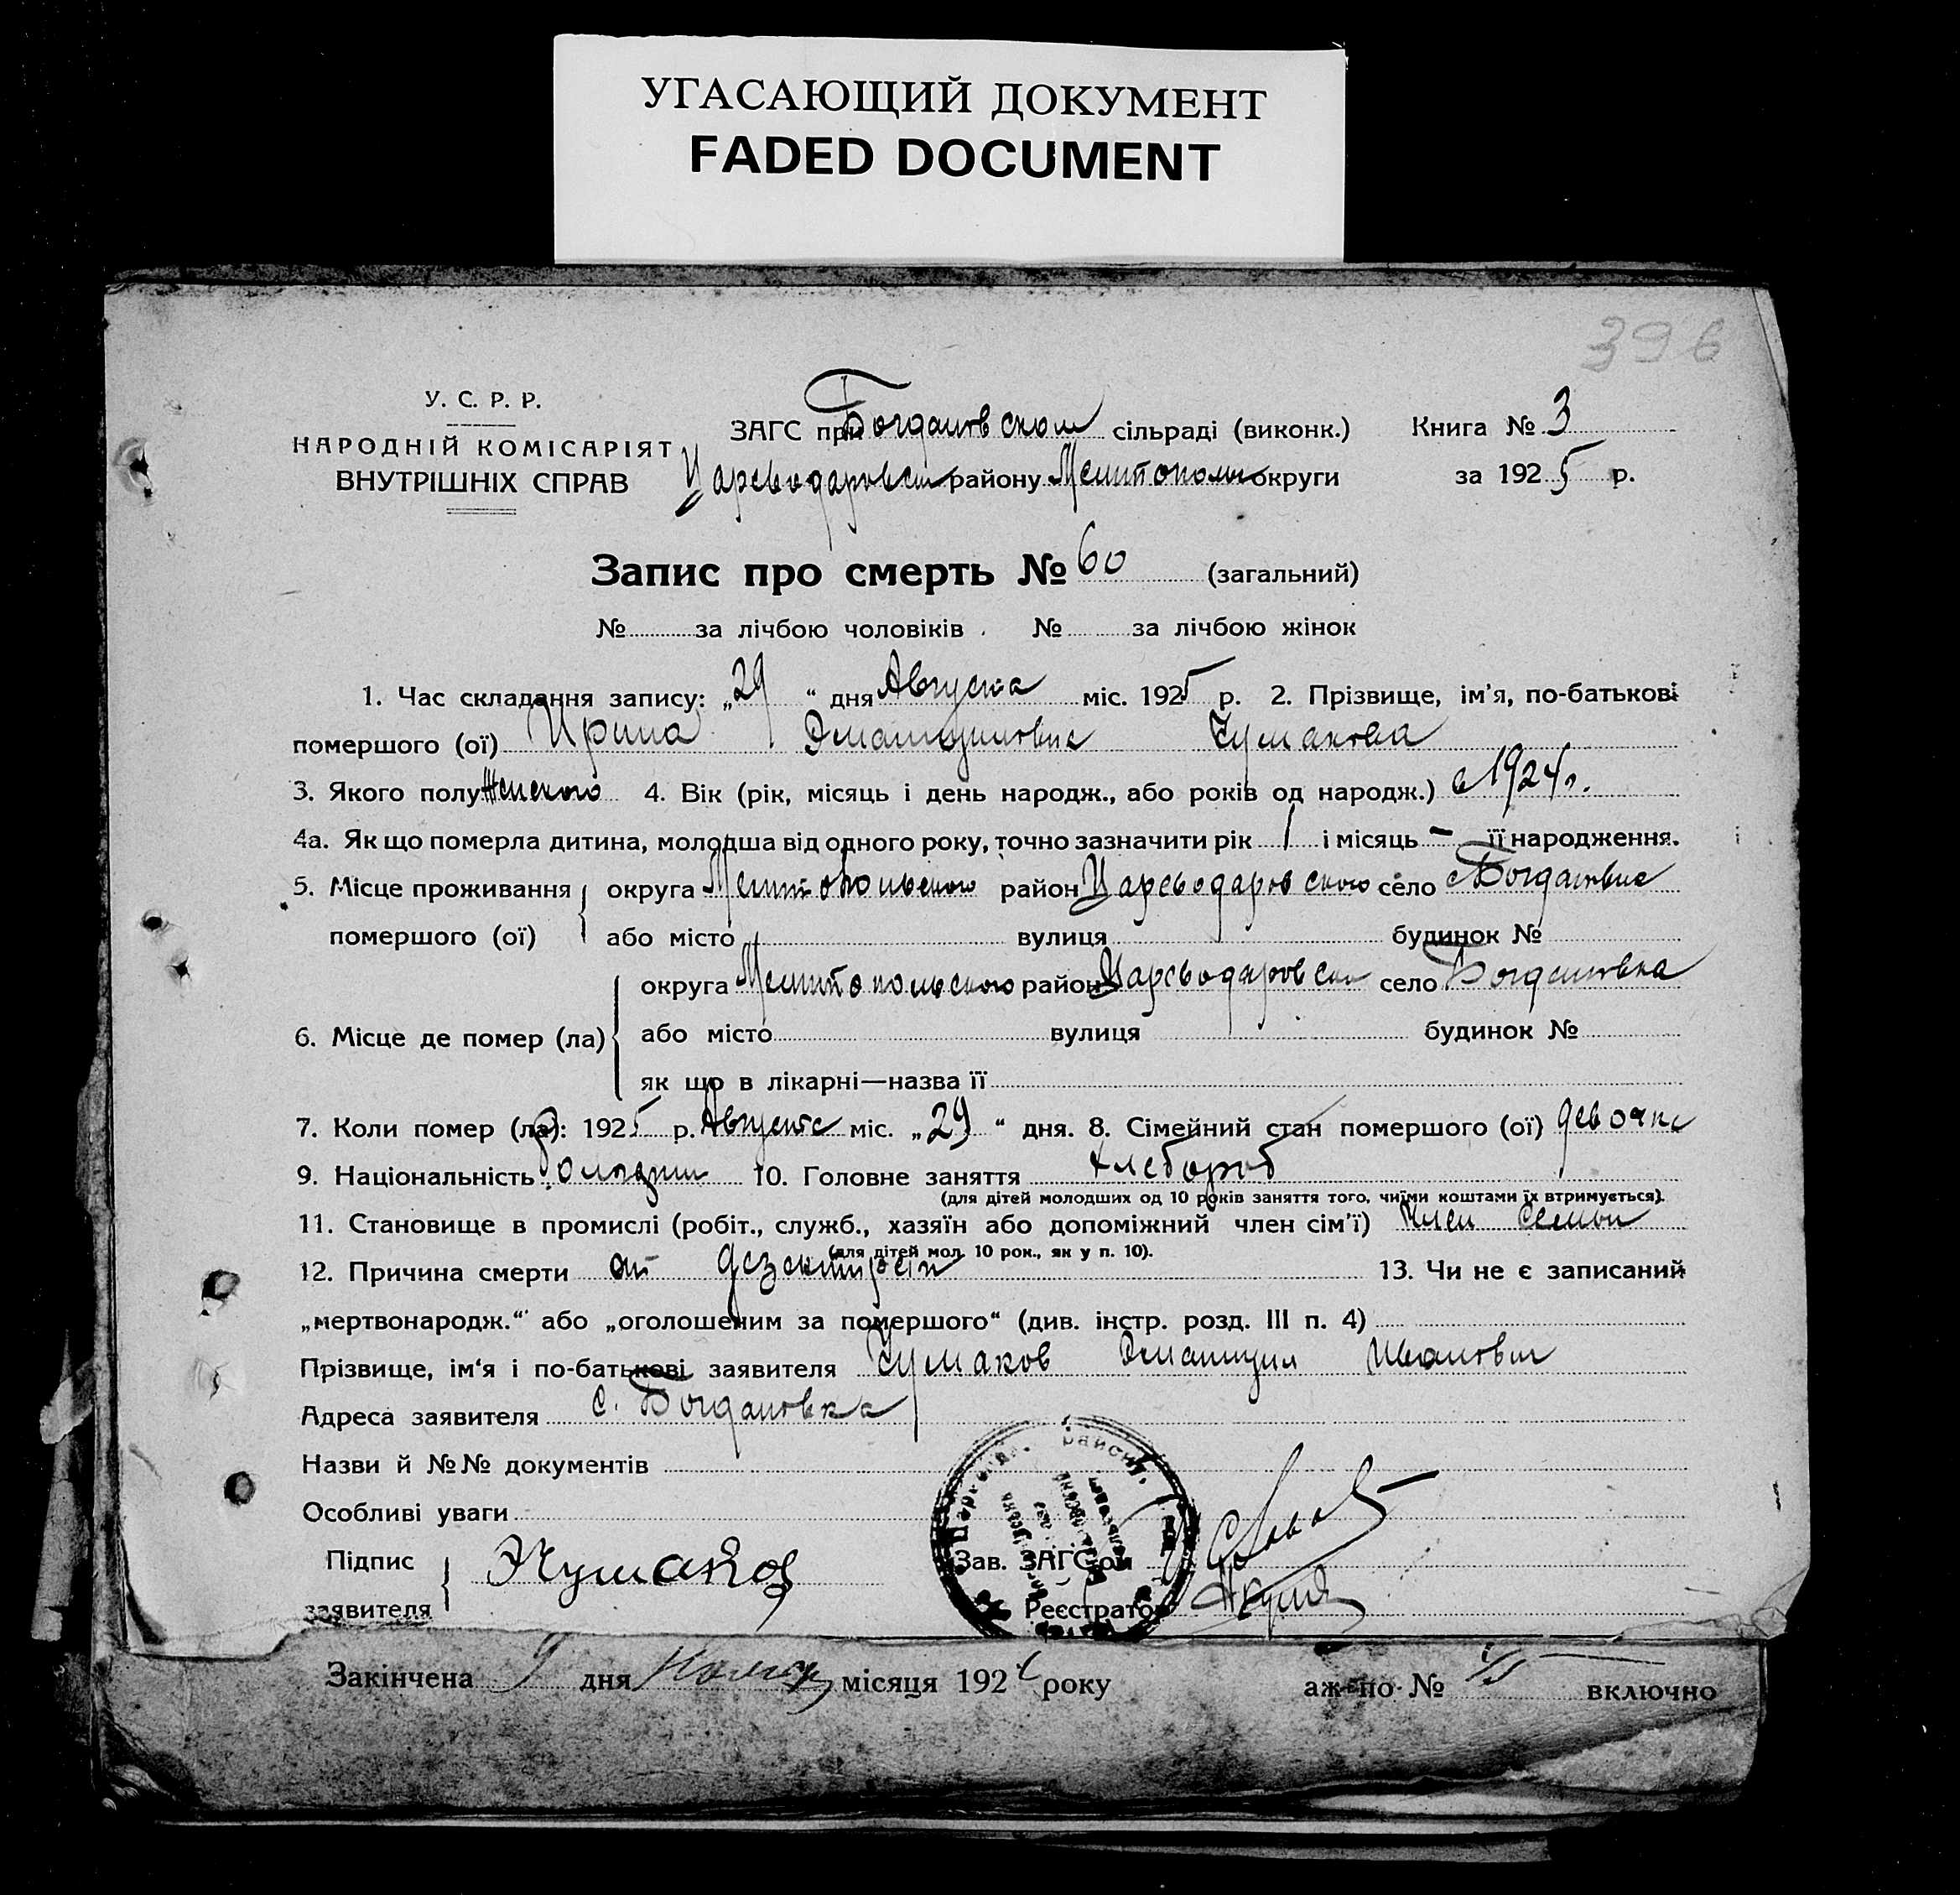 УГАСАЮЩИЙ ДОКУМЕНТ
FADED DOCUMENT
396
У. С. Р. Р.
НАРОДНІЙ КОМІСАРІЯТ
ВНУТРІШНІХ СПРАВ
ЗАГС при Богдановском сільраді (виконк.)
Царсводаровск району Мелитополь округи
Книга № 3
за 1925 р.
Запис про смерть № 60 (загальний)
№ за лічбою чоловіків. № за лічбою жінок
1. Час складання запису: „29“ дня Августа міс. 1925 р. 2. Прізвище, ім'я, по-батькові
помершого (ої) Ирина Чумакова
3. Якого полу Женского 4. Вік (рік, місяць і день народж., або років од народж.) с 1924 г.
4а. Як що померла дитина, молодша від одного року, точно зазначити рік 1 і місяць - її народження.
5. Місце проживання округа Мелитопольского район Царсводаровского село Богдановке
помершого (ої) або місто вулиця будинок №
округа Мелитопольского район Царсводаровск село Богдановка
6. Місце де помер (ла) або місто вулиця будинок №
як що в лікарні—назва її
7. Коли помер (ла): 1925 р. Августа міс. „29“ дня. 8. Сімейний стан помершого (ої) девочка
9. Національність 10. Головне заняття Хлебороб
(для дітей молодших од 10 років заняття того, чиїми коштами їх втримується).
11. Становище в промислі (робіт., служб., хазяїн або допоміжний член сім'ї) Член Семьи
(для дітей мол. 10 рок., як у п. 10).
12. Причина смерти от 13. Чи не є записаний
„мертвонародж.“ або „оголошеним за помершого“ (див. інстр. розд. III п. 4)
Прізвище, ім'я і по-батькові заявителя Чумаков Эмануил Иванович
Адреса заявителя с. Богдановка
Назви й №№ документів
Особливі уваги
Підпис
заявителя Чумаков
Зав. ЗАГС'ом
Реєстратор
Закінчена дня місяця 192 року аж по № включно